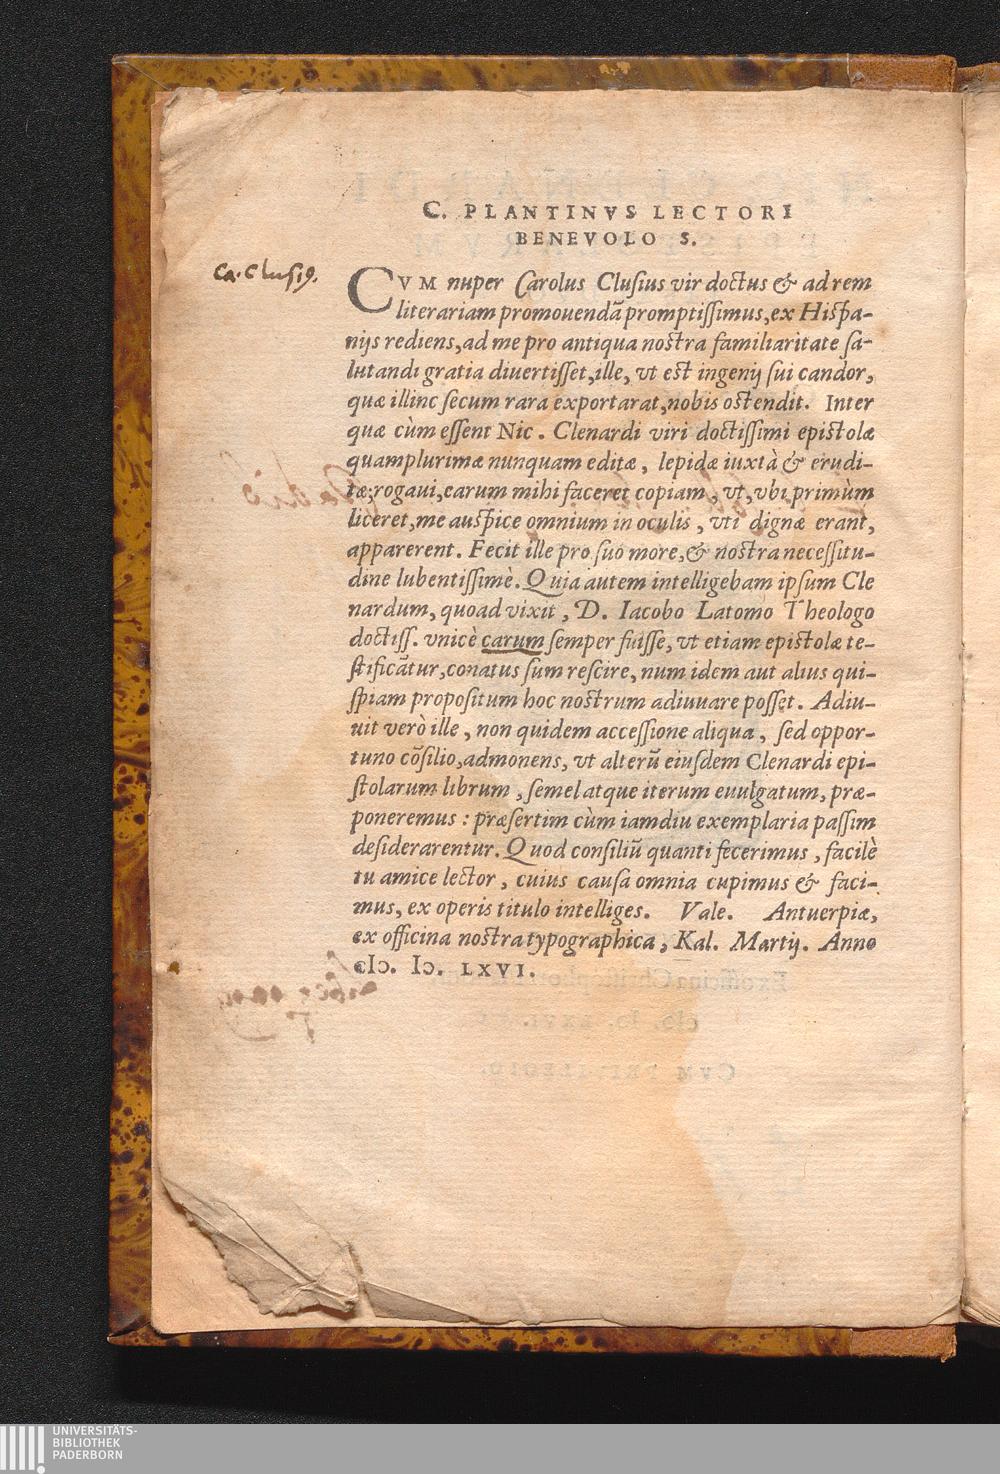 C. PLANTINVS LECTORI
BENEVOLO S.
Ca. Clusiꝰ.
CVM nuper Carolus Clusius vir doctus & ad rem
literariam promouendā promptissimus, ex Hispa-
nijs rediens, ad me pro antiqua nostra familiaritate sa-
lutandi gratia diuertisset, ille, vt est ingenij sui candor,
quæ illinc secum rara exportarat, nobis ostendit. Inter
quæ cùm essent Nic. Clenardi viri doctissimi epistolæ
quamplurimæ nunquam editæ, lepidæ iuxtà & erudi-
tæ; rogaui, earum mihi faceret copiam, vt, vbi primùm
liceret, me auspice omnium in oculis, vti dignæ erant,
apparerent. Fecit ille pro suo more, & nostra necessitu-
dine lubentissimè. Quia autem intelligebam ipsum Cle
nardum, quoad vixit, D. Iacobo Latomo Theologo
doctiss. vnicè carum semper fuisse, vt etiam epistolæ te-
stificātur, conatus sum rescire, num idem aut alius qui-
spiam propositum hoc nostrum adiuuare posset. Adiu-
uit verò ille, non quidem accessione aliqua, sed oppor-
tuno cōsilio, admonens, vt alterū eiusdem Clenardi epi-
stolarum librum, semel atque iterum euulgatum, præ-
poneremus: præsertim cùm iamdiu exemplaria passim
desiderarentur. Quod consiliū quanti fecerimus, facilè
tu amice lector, cuius causa omnia cupimus & faci-
mus, ex operis titulo intelliges. Vale. Antuerpiæ,
ex officina nostra typographica, Kal. Martij. Anno
cIɔ. Iɔ. LXVI.
UNIVERSITÄTS-
BIBLIOTHEK
PADERBORN